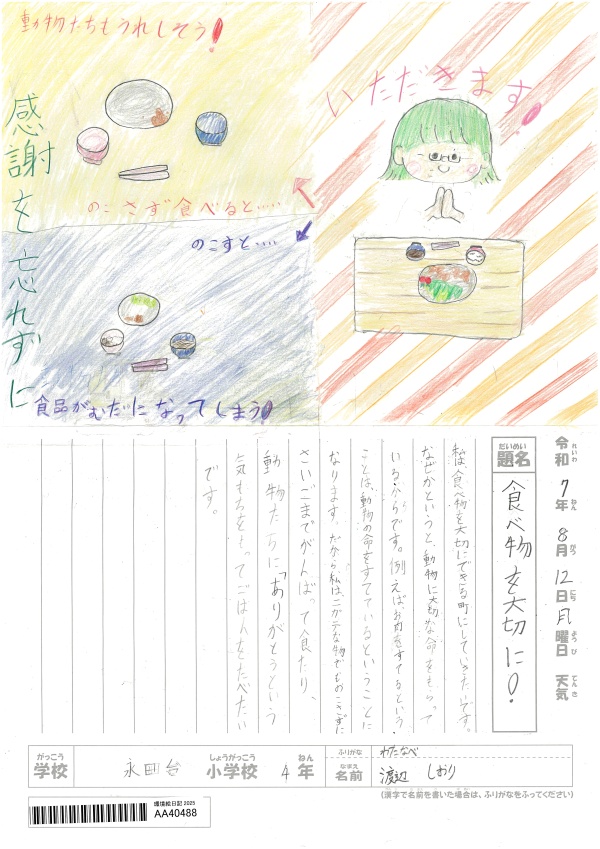 動物たちもうれしそう!
感謝を忘れずに
のこさず食べると.....
のこすと....
食品がむだになってしまう!
いただきます!
令和7年8月12日月曜日 天気
れいわ ねん がつ にち ようび てんき
だいめい
題名
食べ物を大切に!
私は、食べ物を大切にできる町にしていきたいです。
なぜかというと、動物に大切な命をもらって
いるからです。例えばお肉をすてるという
ことは、動物の命をすてているということに
なります。だから私は、ニガテな物でものこさずに
さいごまでがんばって食たり、
動物たちに「ありがとうという
気もちをもってごはんをたべたい
です。
がっこう
学校
永田台
しょうがっこう
小学校
4
ねん
年
ふりがな
わたなべ
なまえ
名前
渡辺 しおり
(漢字で名前を書いた場合は、ふりがなをふってください)
環境絵日記 2025
AA40488